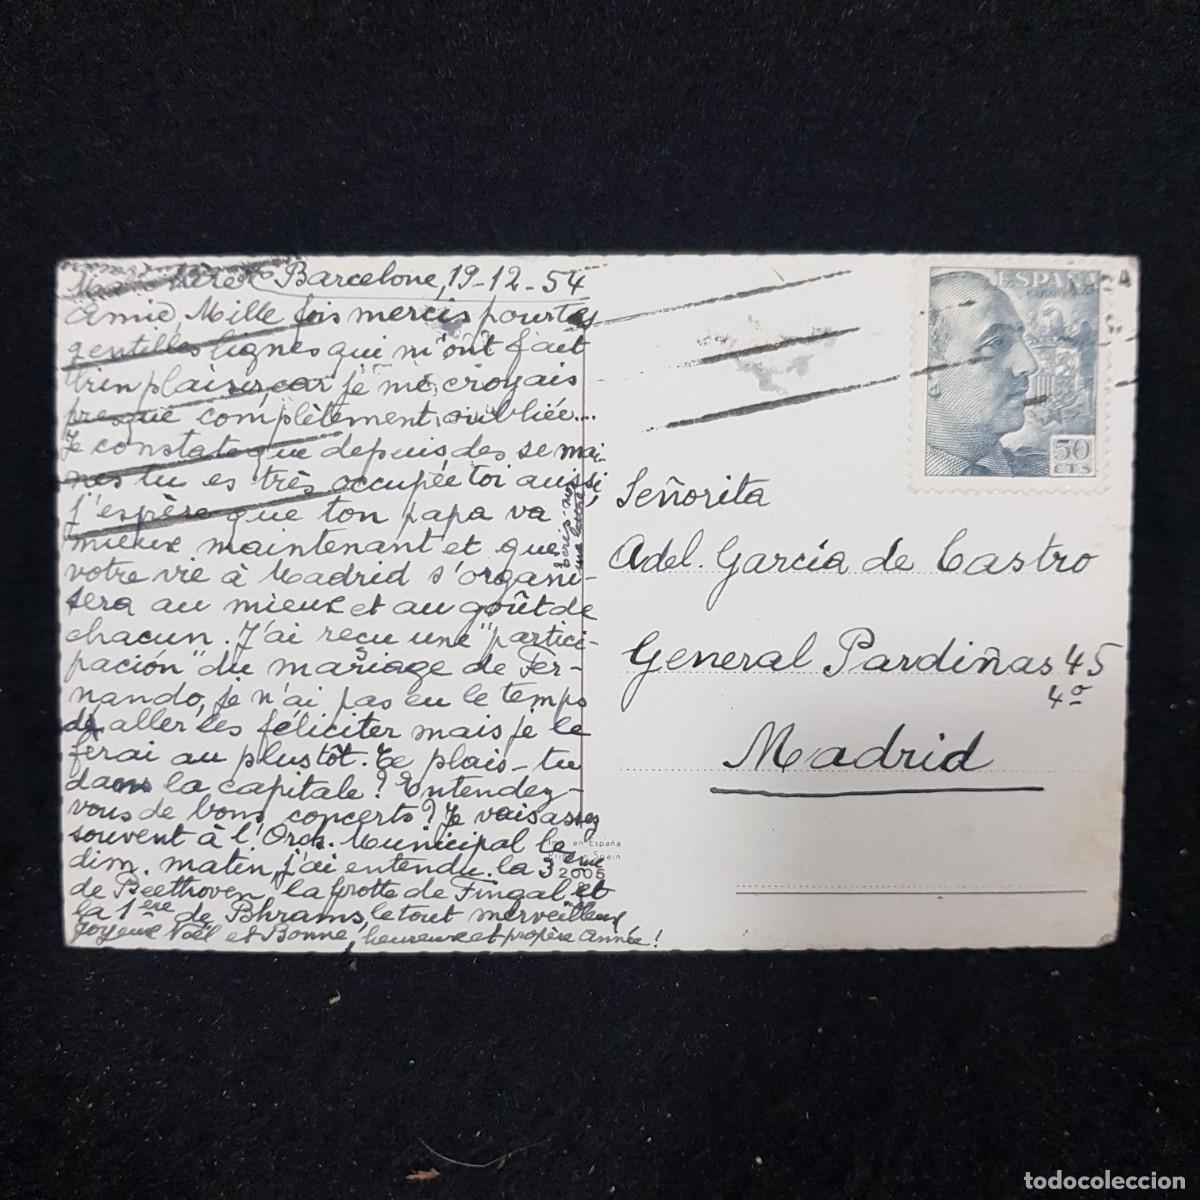 Barcelone, 19-12-54
amie, Mille fois mercis pour tes
gentilles lignes qui m'ont fait
plaisir, car je me croyais
presque complètement oubliée...
Je constate que depuis des semai-
nes tu es très occupée toi aussi,
j'espère que ton papa va
mieux maintenant et que
votre vie à Madrid s'organi-
sera au mieux et au goût de
chacun. J'ai reçu une "partici-
pación" du mariage de Fer-
nando, je n'ai pas eu le temps
aller les féliciter mais je le
ferai au plustôt. Te plais-tu
dans la capitale? Entendez-
vous de bons concerts? Je vais assez
souvent à l'Orch. Municipal le
dim. matin, j'ai entendu la 3eme
de Beethoven la Grotte de Fingal et
la 1ère de Bhrams, le tout merveilleux
Joyeux Noël et Bonne, heureuse et propère année!
ESPAÑA
50
CTS
Señorita
Adel. García de Castro
General Pardiñas 45
4º
Madrid
en España
Spain
2005
todocoleccion